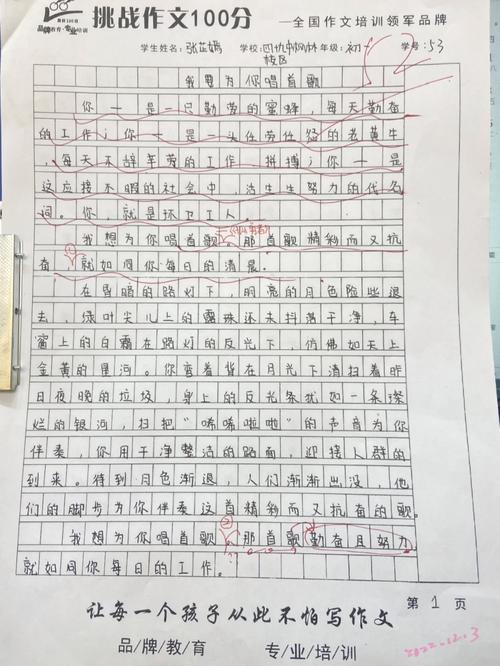 挑战作文100分
全国作文培训领军品牌
品牌教育·专业培训
学生姓名: 张芷嫣 学校: 年级: 初一 学号: 53
校区
我要为你唱首歌
你一是一只勤劳的蜜蜂,每天勤奋
的工作;你一是一头任劳任怨的老黄牛
,每天不辞辛劳的工作、拼搏;你一是
这应接不暇的社会中,活生生努力的代名
词。你,就是环卫工人
我想为你唱首歌 那首歌精彩而又抗
奋 就如同你每日的清晨。
在昏暗的路灯下,明亮的月色险些退
去,绿叶尖儿上的露珠还未抖落干净,车
窗上的白霜在路灯的反光下,仿佛如天上
金黄的星河。你弯着背在月光下清扫着昨
日夜晚的垃圾,身上的反光条犹如一条璨
烂的银河,扫把“唏唏啦啦”的声音为你
伴奏,你用干净整洁的路面,迎接人群的
到来。待到月色渐退,人们渐渐出没,他
们的脚步为你伴奏这首精彩而又抗奋的歌。
我想为你唱首歌 那首歌 勤奋且努力
就如同你每日的工作。
第 1 页
让每一个孩子从此不怕写作文
品/牌/教/育 专/业/培/训
2022.12.3